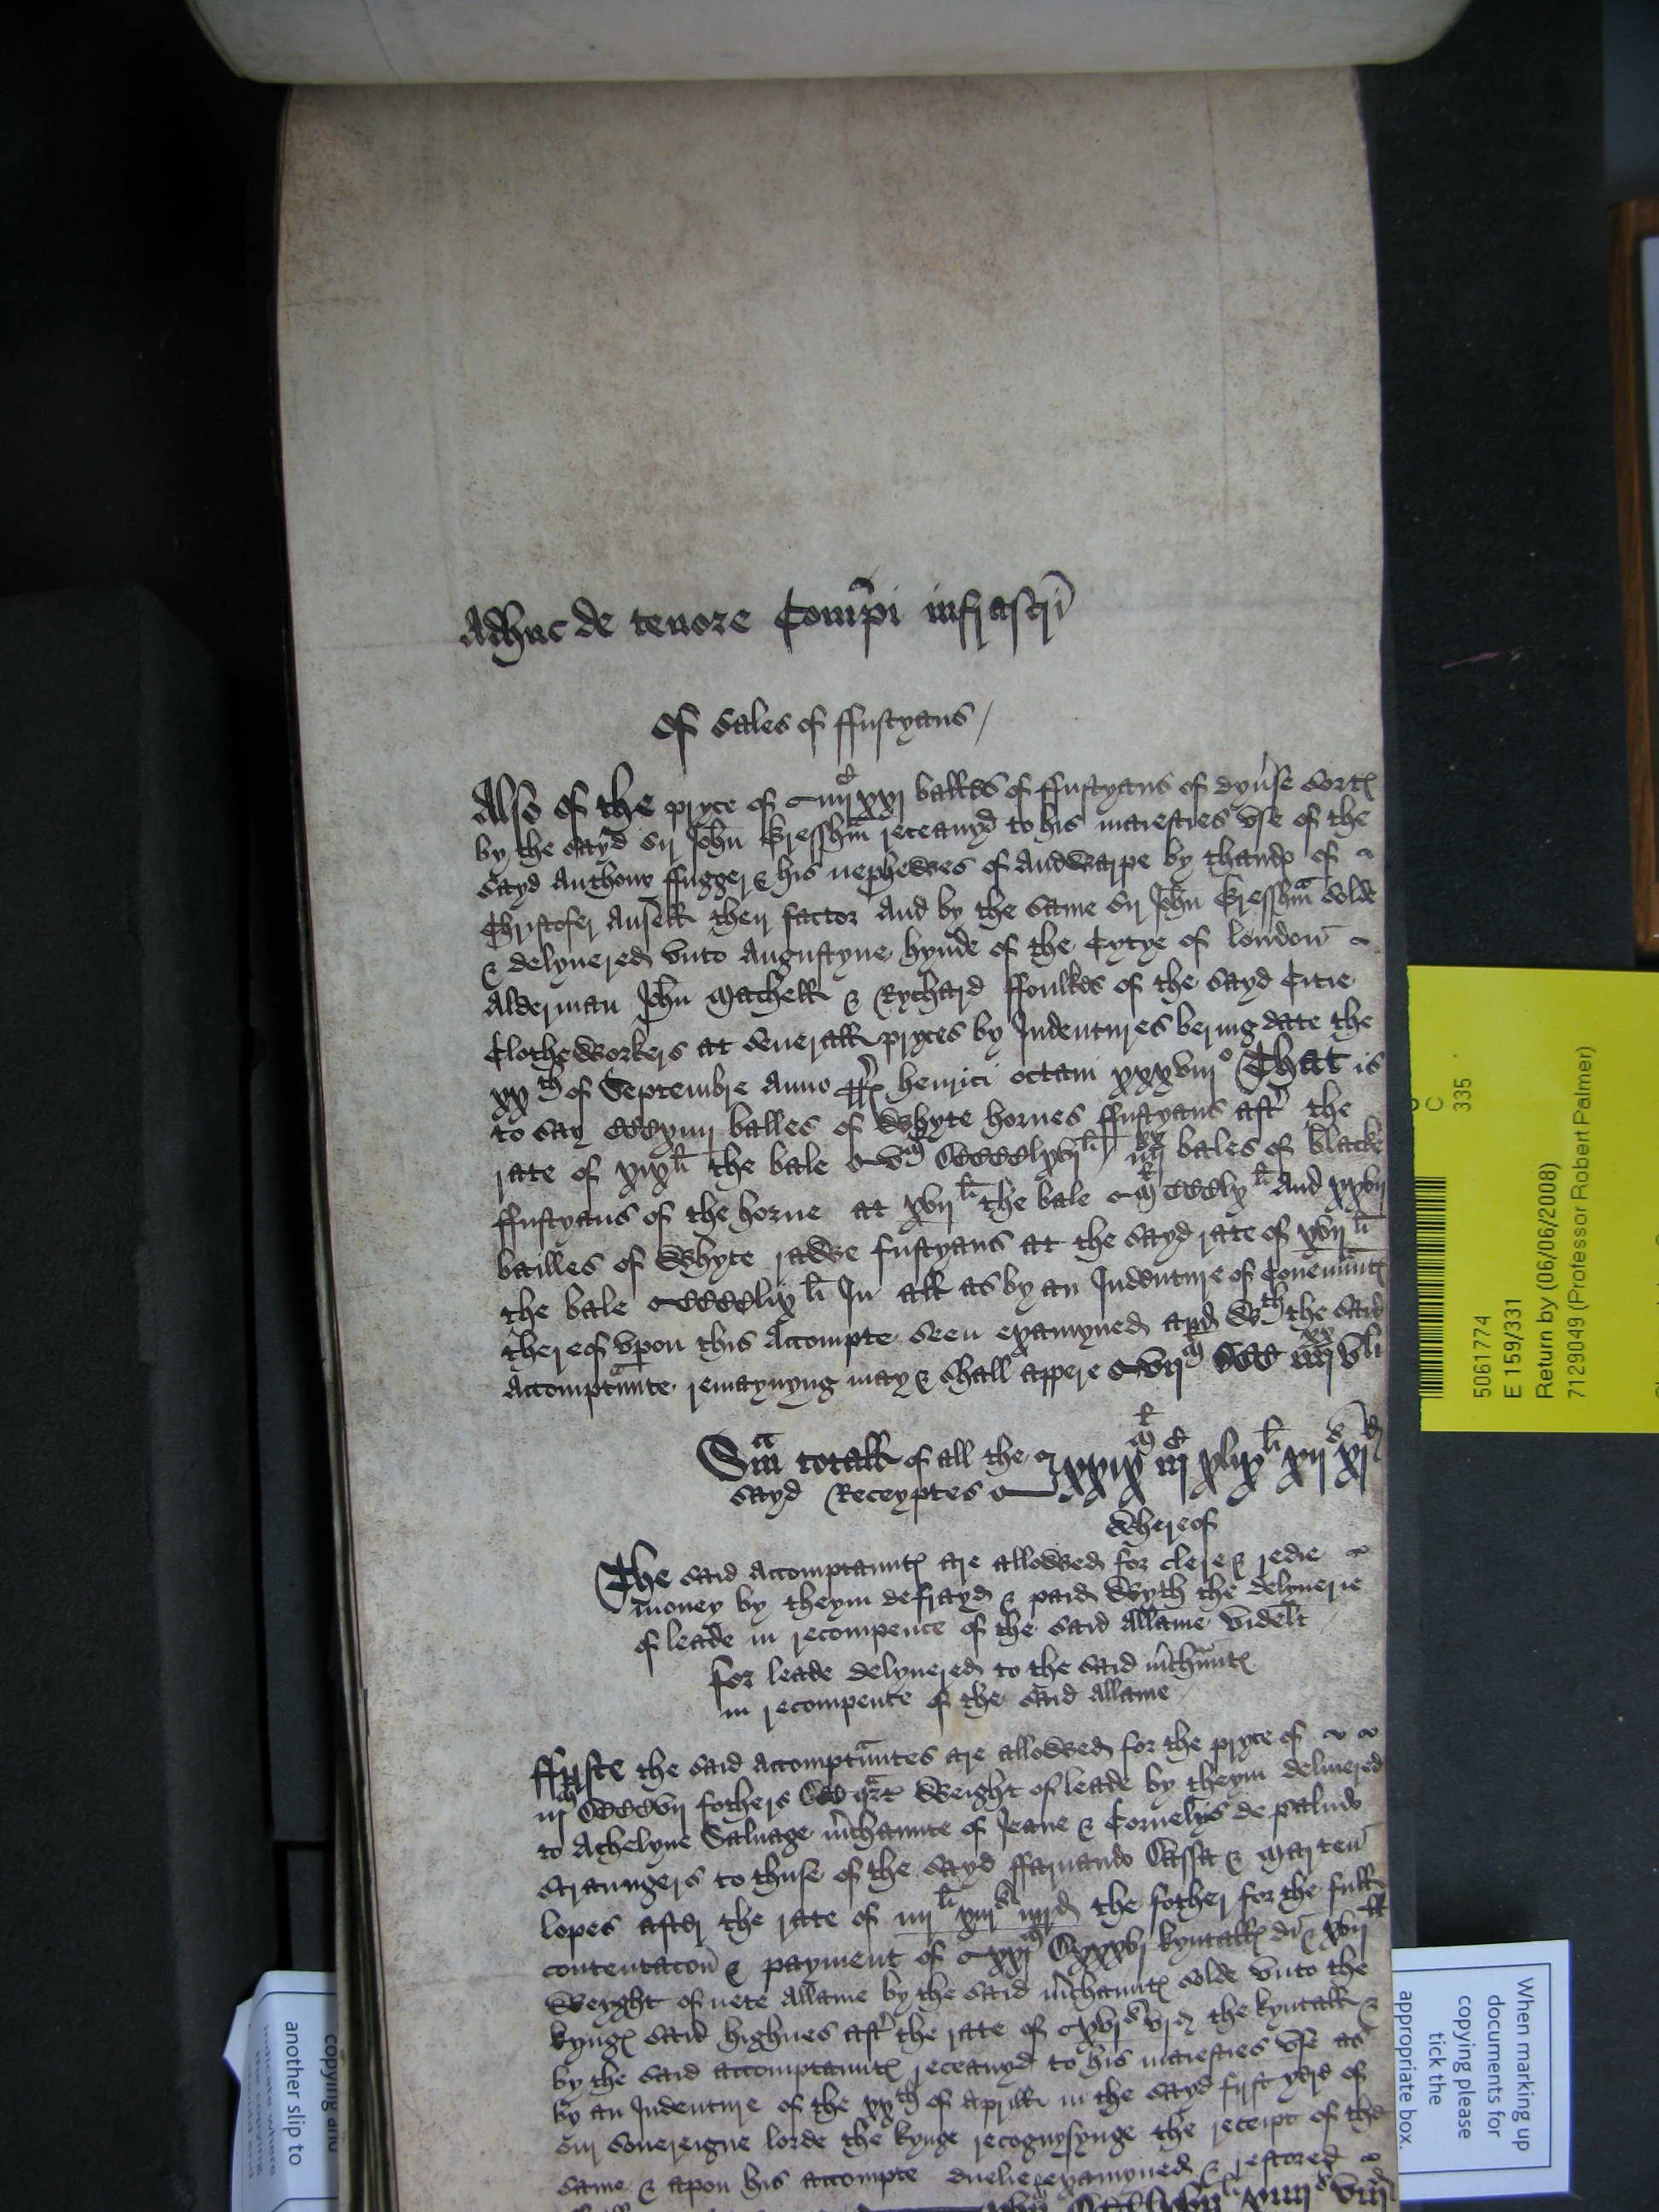 Adhuc de tenore Compi infrascr
Of Sales of ffustyans /
Also of the pryce of iiij xxj balles of ffustyans of dyuse sort
by the sayd Sir John Gressham receauyd to his maiesties vse of the
sayd Anthony ffugger & his nephewes of Andwarpe by thandes of
Christofer Ansell their factor And by the same Sir John Gressham solde
& delyuered vnto Augustyne hynde of the Cytye of london
Alderman John Machell & Rychard ffoulkes of the sayd Citie
Clotheworkers at seuerall pryces by Indentures bering date the
xxth of Septembre anno RR henrici octaui xxxviijo That is
to say CCCxiiij balles of Whyte hornes ffustyans aft the
rate of xixli the bale vm CCCClxvjli iiijxx bales of blacke
ffustyans of the horne at xvijli the bale m CCClxli And xxvij
bailles of Whyte rawe fustyans at the sayd rate of xvijli
the bale CCCClixli In all as by an Indenture of Couenunt
thereof vpon this Accompte seen examyned and wth the said
Accomptante remaynyng may & shall appere vijm CCC iiijxx vli
Sma totall of all the xxixm iijC xlixli xijs xjd
sayd Receyptes
Whereof
The said Accomptaunt are allowed for clere & redie
money by theym defrayd & paid Wyth the delyuerie
of leade in recompence of the said Allame videlt
for leade delyuered to the said mchaunt
in recompence of the said Allame
ffirste the said Accomptantes are allowed for the pryce of
iijm CCCvij fothers CC qrt Weight of leade by theym deliuered
to Achelyne Saluage mchaunte of Jeane & Cornelys de paludo
straungers to thuse of the sayd ffarnando Cassa & Marten
lopes after the rate of iiijli xiijs iiijd the fother for the full
contentacon & payment of xxjm Cxxvj kyntall di & xvij
Weyght of nete Allame by the said mchaunt solde vnto the
kyng said highnes aft the rate of xvjs vjd the kyntall &
by the said accomptaunt receauyd to his maiesties vse as
by an Indenture of the xxth of Aprill in the sayd fyrst yere of
our souereigne lorde the kynge recognysynge the receipt of the
same & apon his accompte duelie examyned & restored
5061774
E 159/331
Return by (06/06/2008)
7129049 (Professor Robert Palmer)
C
335
When marking up
documents for
copying please
tick the
appropriate box.
copying and
another slip to